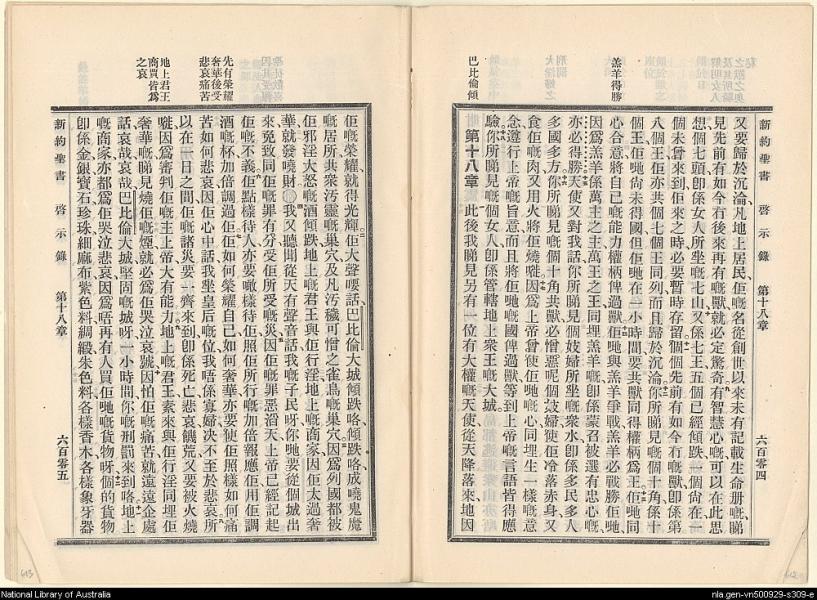 新約聖書 啓示錄 第十八章 六百零四
羔羊得勝
巴比倫傾
又要歸於沉淪凡地上居民佢嘅名從創世以來未有記載生命册嘅睇
見先前有如今冇後來再有嘅獸就必定驚奇有智慧心嘅可以在此思
想個七頭卽係女人所坐嘅七山又係七王五個已經傾跌一個尙在一
個未曾來到佢來之時必要暫時存留個個先前有如今冇嘅獸卽係第
八個王佢亦共個七個王同列而且歸於沉淪你所睇見嘅個十角係十
個王佢哋尙未得國但佢哋在一小時間要共獸同得權柄爲王佢哋同
心合意將自己嘅能力權柄俾過獸佢哋與羔羊爭戰羔羊必戰勝佢哋
因爲羔羊係萬主之主萬王之王同埋羔羊嘅卽係蒙召被選有忠心嘅
亦必得勝天使又對我話你所睇見個妓婦所坐嘅衆水卽係多民多人
多國多方你所睇見嘅個十角共獸必憎惡呢個妓婦使佢冷落赤身又
食佢嘅肉又用火將佢燒嘵因爲上帝曾使佢哋嘅心同埋生一樣嘅意
念遵行上帝嘅旨意而且將佢哋嘅國俾過獸等到上帝嘅言語皆得應
驗你所睇見嘅個女人卽係管轄地上衆王嘅大城
第十八章 此後我睇見另有一位有大權嘅天使從天降落來地因
先有榮耀
奢華後受
悲哀痛苦
地上君王
商買皆爲
之哀
佢嘅榮耀就得光輝佢大聲嘤話巴比倫大城傾跌咯傾跌咯成嘵鬼魔
嘅居所共衆汚靈嘅巢穴及凡汚穢可憎之雀鳥嘅巢穴因爲列國都被
佢邪淫大怒嘅酒傾跌地上嘅君王與佢行淫地上嘅商家因佢太過奢
華就發嘵財〇我又聽聞從天有聲音話我嘅子民呀你哋要從個城出
來免致同佢嘅罪有分受佢所受嘅災因佢嘅罪惡滔天上帝已經記起
佢嘅不義佢點樣待人亦要噉樣待佢照佢所行嘅加倍報應佢用佢調
酒嘅杯加倍調過佢佢如何榮耀自己如何奢華亦要使佢照樣如何痛
苦如何悲哀因佢心中話我坐皇后嘅位我唔係寡婦决不至於悲哀所
以在一日之間佢嘅諸災要一齊來到卽係死亡悲哀饑荒又要被火燒
嘵因爲審判佢嘅主上帝大有能力地上嘅君王素來與佢行淫同埋佢
奢華嘅睇見燒佢嘅煙就必爲佢哭泣哀號因怕佢嘅痛苦就遠遠企處
話哀哉哀哉巴比倫大城堅固嘅城呀一小時間你嘅刑罰來到咯地上
嘅商家亦都爲佢哭泣悲哀因爲唔再有人買佢哋嘅貨物呀個的貨物
卽係金銀寶石珍珠細麻布紫色料綢緞朱色料各樣香木各樣象牙器
新約聖書 啓示錄 第十八章 六百零五
National Library of Australia
nla.gen-vn500929-s309-e